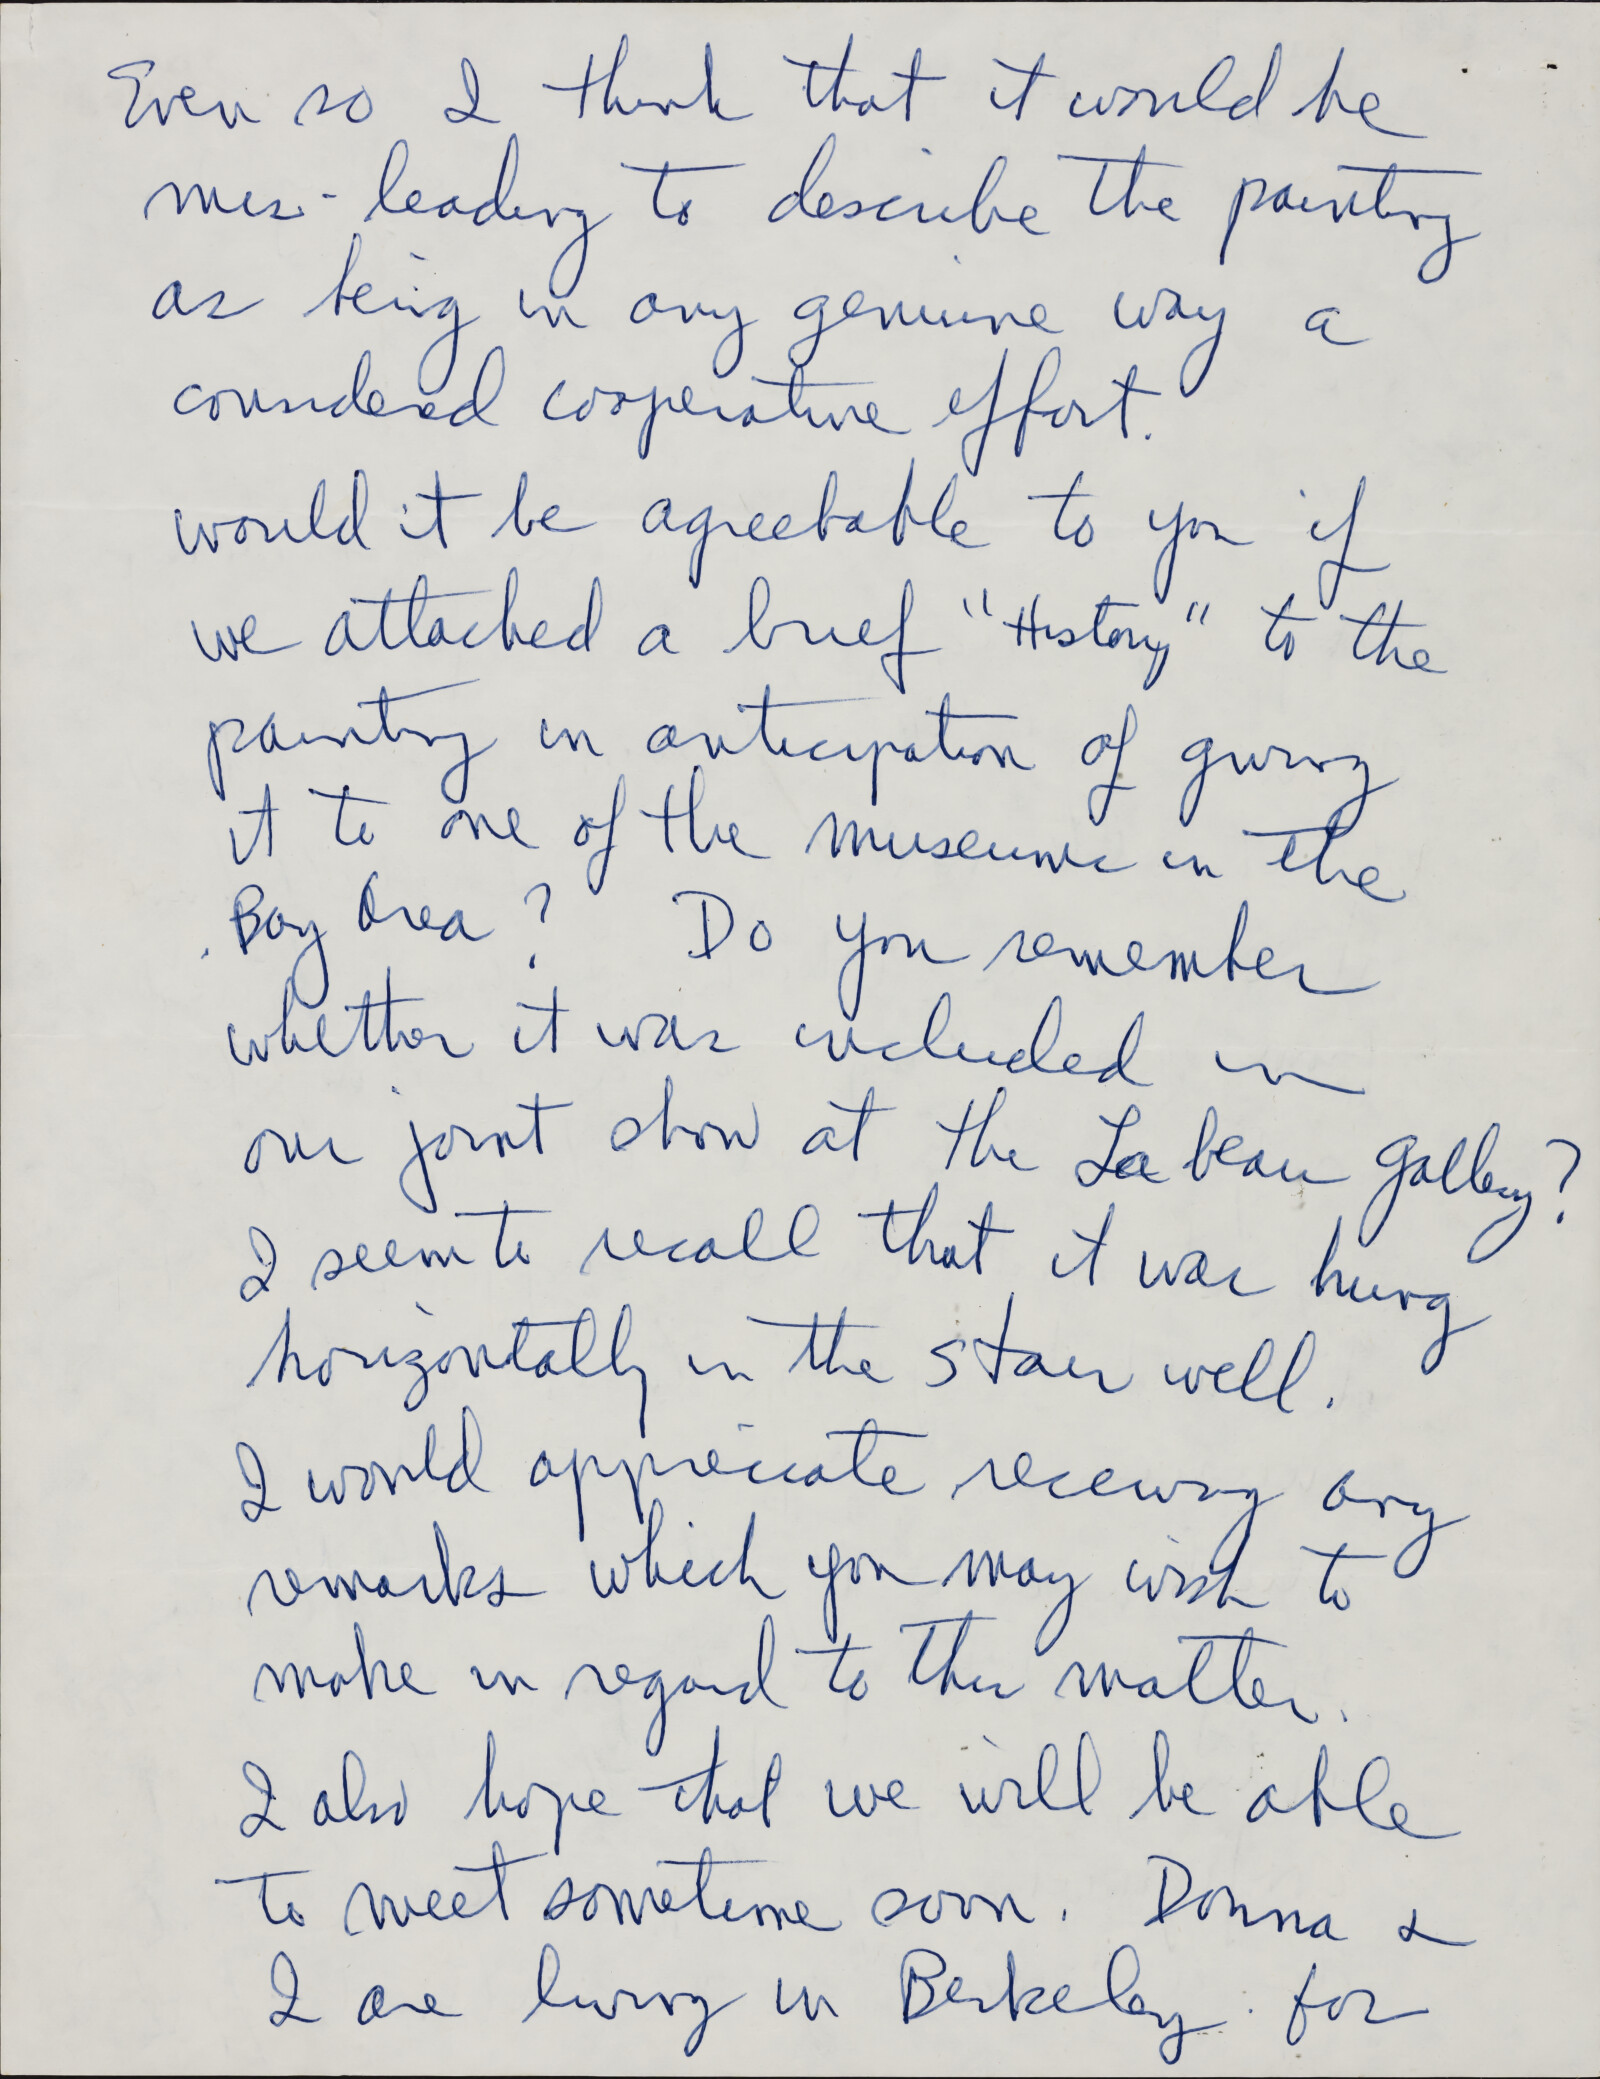 Even so I think that it would be
mis-leading to describe the painting
as being in any genuine way a
considered cooperative effort.
would it be agreebable to you if
we attached a brief "History" to the
painting in anticipation of giving
it to one of the museums in the
Bay Area? Do you remember
whether it was included in
our joint show at the La beau Gallery?
I seem to recall that it was hung
horizontally in the stair well.
I would appreciate receiving any
remarks which you may wish to
make in regard to this matter.
I also hope that we will be able
to meet sometime soon. Donna &
I are living in Berkeley for